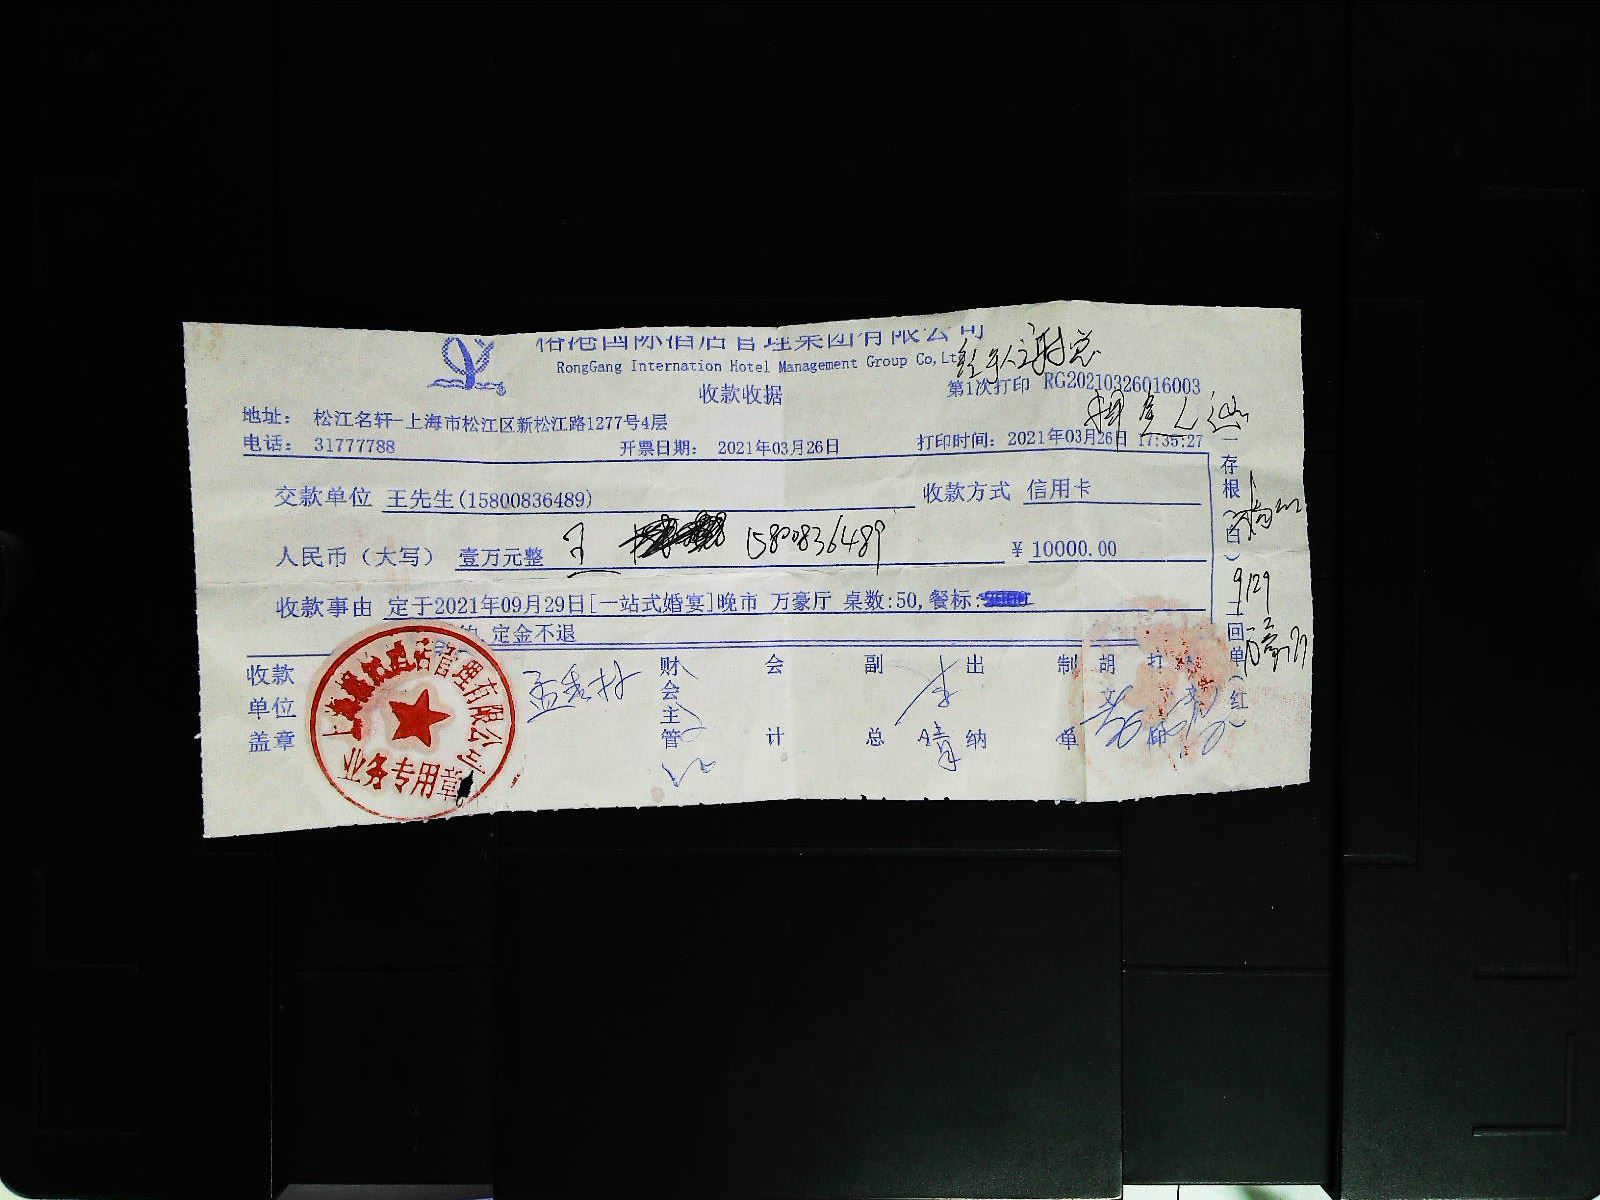 国际酒店管理集团有限公司
RongGang Internation Hotel Management Group Co,Lt
收款收据
第1次打印 RG20210326016003
地址： 松江名轩-上海市松江区新松江路1277号4层
电话： 31777788 开票日期： 2021年03月26日 打印时间： 2021年03月26日 17:35:27
交款单位 王先生(15800836489) 收款方式 信用卡
人民币（大写） 壹万元整 王 15800836489 ￥ 10000.00
收款事由 定于2021年09月29日[一站式婚宴]晚市 万豪厅 桌数:50,餐标:
定金不退
收款单位盖章 财会主管 会计 副总 出纳 制单 胡 打印
李
晴
管理有限公司
业务专用章
一存根（白）
二回单（红
9/29